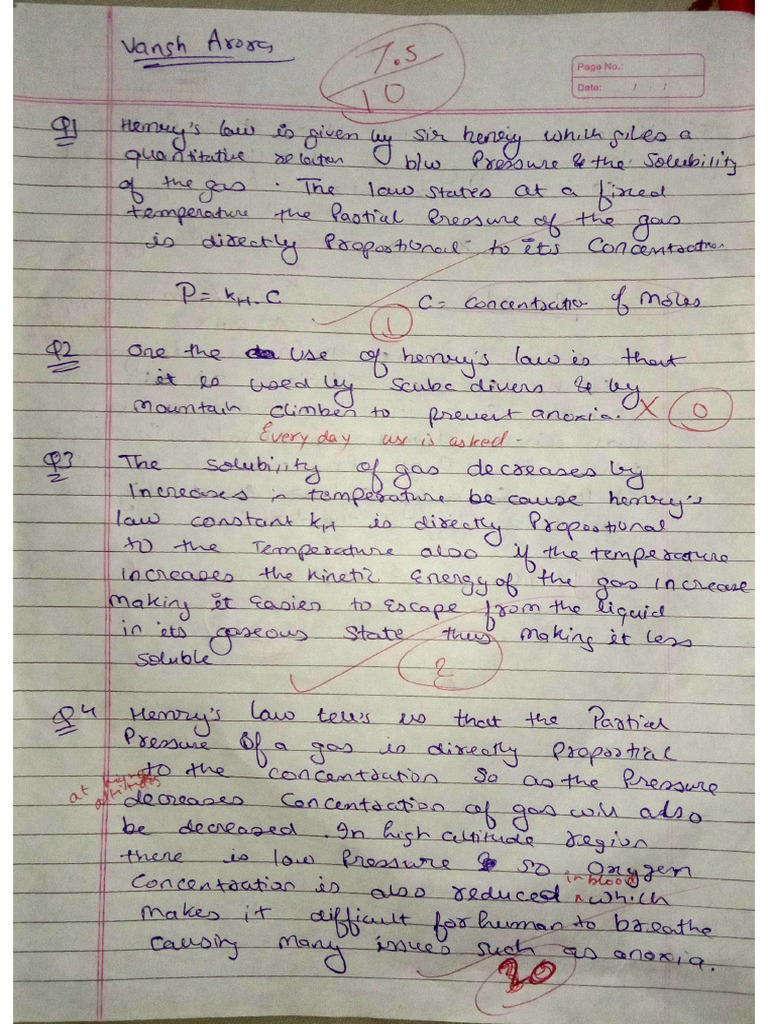 Vansh Arora
7.5
10
Page No.:
Date: / /
Q1 Henry's law is given by Sir henry which gives a
quantitative relation b/w Pressure & the Solubility
of the gas. The law states at a fixed
temperature the Partial Pressure of the gas
is directly Proportional to its Concentration
P = kH.C C = Concentration of Moles
1
Q2 One the use of henry's law is that
it is used by scuba divers & by
mountain climber to prevent anoxia. X 0
Every day use is asked.
Q3 The solubility of gas decreases by
Increases in temperature because henry's
law constant kH is directly Proportional
to the Temperature also if the temperature
increases the kinetic energy of the gas increase
making it easier to escape from the liquid
in its gaseous state thus making it less
soluble
2
Q4 Henry's law tells us that the Partial
Pressure of a gas is directly Proportial
to the concentration so as the Pressure
at altitudes
decreases Concentration of gas will also
be decreased. In high altitude region
there is low Pressure so Oxygen
in blood
Concentration is also reduced which
makes it difficult for human to breathe
causing many issues such as anoxia.